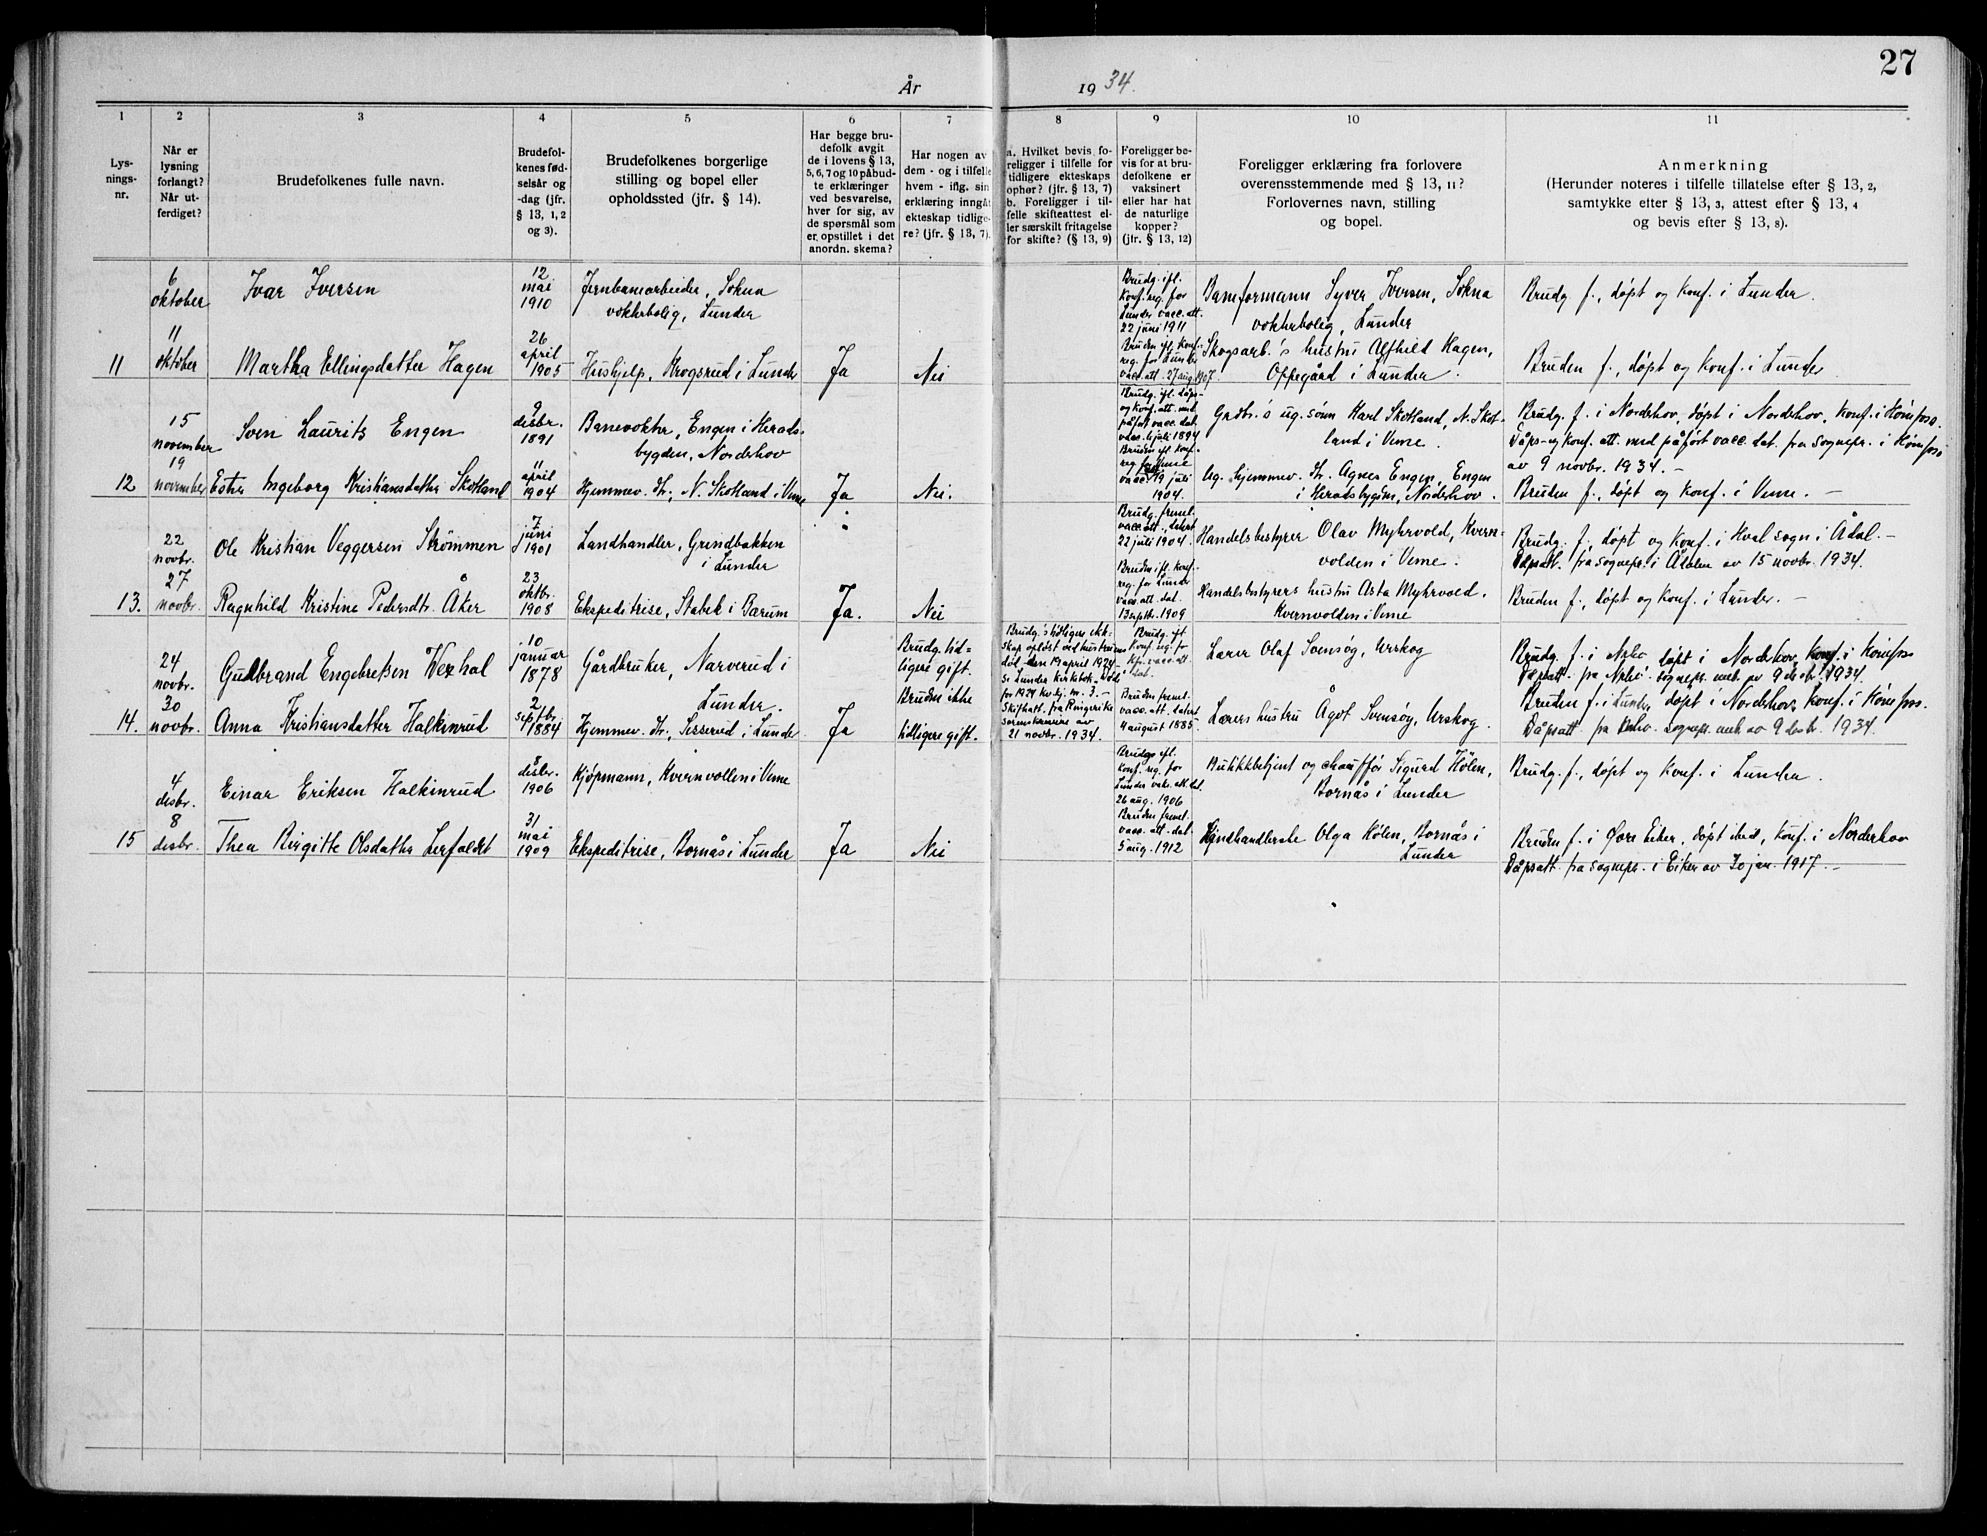 27
År 1934.
1 2 3 4 5 6 7 8 9 10 11
Lys-
nings-
nr.
Når er
lysning
forlangt?
Når ut-
ferdiget?
Brudefolkenes fulle navn.
Brudefol-
kenes fød-
selsår og
-dag (jfr.
§ 13, 1, 2
og 3).
Brudefolkenes borgerlige
stilling og bopel eller
opholdssted (jfr. § 14).
Har begge bru-
defolk avgit
de i lovens § 13,
5, 6, 7 og 10 påbud-
te erklæringer
ved besvarelse,
hver for sig, av
de spørsmål som
er opstillet i det
anordn. skema?
Har nogen av
dem - og i tilfelle
hvem - iflg. sin
erklæring inngåt
ekteskap tidlige-
re? (jfr. § 13, 7).
a. Hvilket bevis fo-
religger i tilfelle for
tidligere ekteskaps
ophør? (jfr. § 13, 7)
b. Foreligger i til-
felle skifteattest el-
ler særskilt fritagelse
for skifte? (§ 13, 9)
Foreligger be-
vis for at bru-
defolkene er
vaksinert
eller har hat
de naturlige
kopper?
(jfr. § 13, 12)
Foreligger erklæring fra forlovere
overensstemmende med § 13, 11?
Forlovernes navn, stilling
og bopel.
Anmerkning
(Herunder noteres i tilfelle tillatelse efter § 13, 2,
samtykke efter § 13, 3, attest efter § 13, 4
og bevis efter § 13, 8).
6
oktober
Ivar Iversen
12
mai
1910
Jernbanearbeider, Sokna
vokterbolig, Lunder
Brudg. ifl.
Konf. reg. for
Lunder vacc. att.
22 juni 1911
Baneformann Syver Iversen, Sokna
vokterbolig, Lunder
Brudg. f., døpt og konf. i Lunder.
11
11
oktober
Martha Ellingsdatter Hagen
26
april
1905
Hushjelp, Krogsrud i Lunder
Ja
Nei
Bruden ifl. konf.
reg. for Lunder
vacc. att. 27 aug. 1907.
Skogsarb.'s hustru Alfhild Hagen,
Oppegård i Lunder.
Bruden f., døpt og konf. i Lunder
15
november
Sven Laurits Engen
9
desbr.
1891
Banevokter, Engen i Herads-
bygden, Norderhov
Brudg. ifl. dåps-
og konf. att. med
påført vacc. dat.
6 juli 1894
Grdbr.'s ug. sønn Karl Skotland, N. Skot-
land i Veme.
Brudg. f. i Norderhov, døpt i Norderhov, konf. i Hønefoss.
Dåps- og konf. att. med påført vacc. dat. fra sognepr. i Hønefoss
av 9 novbr. 1934. -
12
19
november
Ester Ingeborg Kristiansdatter Skotland
11
april
1904
Hjemmev. dtr., N. Skotland i Veme
Ja
Nei.
Bruden ifl. konf.
reg. for Veme
vacc. 19 juli
1904.
Ug. hjemmev. dtr. Agnes Engen, Engen
i Heradsbygden, Norderhov.
Bruden f., døpt og konf. i Veme. -
22
novbr.
Ole Kristian Veggersen Strømmen
7
juni
1901
Landhandler, Grindbakken
i Lunder
Brudg. freml.
vacc. att., datert
22 juli 1904.
Handelsbestyrer Olav Myhrvold, Kvern-
volden i Veme.
Brudg. f., døpt og konf. i Hval sogn i Ådal. -
Dåpsatt. fra sognepr. i Ådalen av 15 novbr. 1934.
13.
27
novbr.
Ragnhild Kristine Pedersdtr. Åker
23
oktbr.
1908
Ekspeditrise, Stabek i Bærum
Ja.
Nei
Bruden ifl. konf.
reg. for Lunder
vacc. att. dat.
13 septbr. 1909
Handelsbestyrers hustru Asta Myhrvold,
Kvernvolden i Veme
Bruden f., døpt og konf. i Lunder. -
24
novbr.
Gulbrand Engebretsen Vexhal
10
januar
1878
Gårdbruker, Narverud i
Lunder.
Brudg. tid-
ligere gift.
Brudg.'s tidligere ekte-
skap opløst ved hustruens
død den 19 april 1924
se Lunder kirkebok døde
for 1924 kv.kj. nr. 3. -
Brudg. ifl.
Konf. reg. for
vacc. att.
dat.
Lærer Olaf Svensøy, Urskog
Brudg. f. i døpt i Norderhov, konf. i Hønefoss
Dåpsatt. fra sognepr. av 9 desbr. 1934.
14.
30
novbr.
Anna Kristiansdatter Halkinrud
2
septbr.
1884
Hjemmev. dtr., Sesserud i Lunder
Ja
Bruden ikke
tidligere gift.
Skifteatt. fra Ringerike
sorenskriveri av
21 novbr. 1934.
Bruden freml.
vacc. att. datert
4 august 1885
Lærers hustru Ågot Svensøy, Urskog.
Bruden f. i Lunder, døpt i Norderhov, konf. i Hønefoss.
Dåpsatt. fra sognepr. av 9 desbr. 1934.
4
desbr.
Einar Eriksen Halkinrud
8
desbr.
1906
Kjøpmann, Kvernvollen i Veme
Brudg. ifl.
Konf. reg. for
Lunder vaks. att. dat.
26 aug. 1906
Butikkbetjent og chauffør Sigurd Hølen,
Bornås i Lunder
Brudg. f., døpt og konf. i Lunder.
15
8
desbr.
Thea Birgitte Olsdatter Lerfaldt
31
mai
1909
Ekspeditrise, Bornås i Lunder
Ja
Nei
Bruden freml.
vacc. att. dat.
5 aug. 1912
Landhandlerske Olga Hølen, Bornås i
Lunder
Bruden f. i Øvre Eiker, døpt ibid., konf. i Norderhov
Dåpsatt. fra sognepr. i Eiker av 30 jan. 1917. -